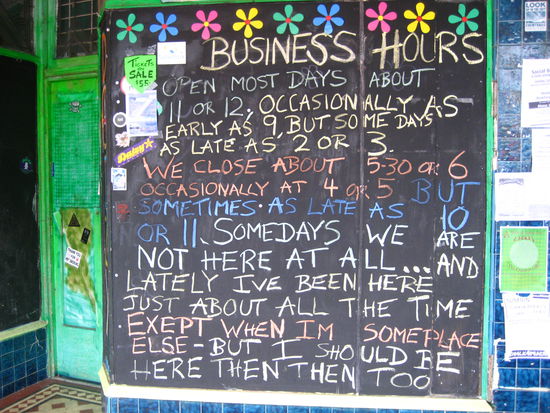 BUSINESS HOURS
OPEN MOST DAYS ABOUT
11 OR 12, OCCASIONALLY AS
EARLY AS 9, BUT SOME DAYS
AS LATE AS 2 OR 3.
WE CLOSE ABOUT 5-30 OR 6
OCCASIONALLY AT 4 OR 5 BUT
SOMETIMES AS LATE AS 10
OR 11. SOMEDAYS WE ARE
NOT HERE AT ALL... AND
LATELY I'VE BEEN HERE
JUST ABOUT ALL THE TIME
EXEPT WHEN I'M SOMEPLACE
ELSE - BUT I SHOULD BE
HERE THEN THEN TOO
TICKETS
SALE
Daisy
LOOK